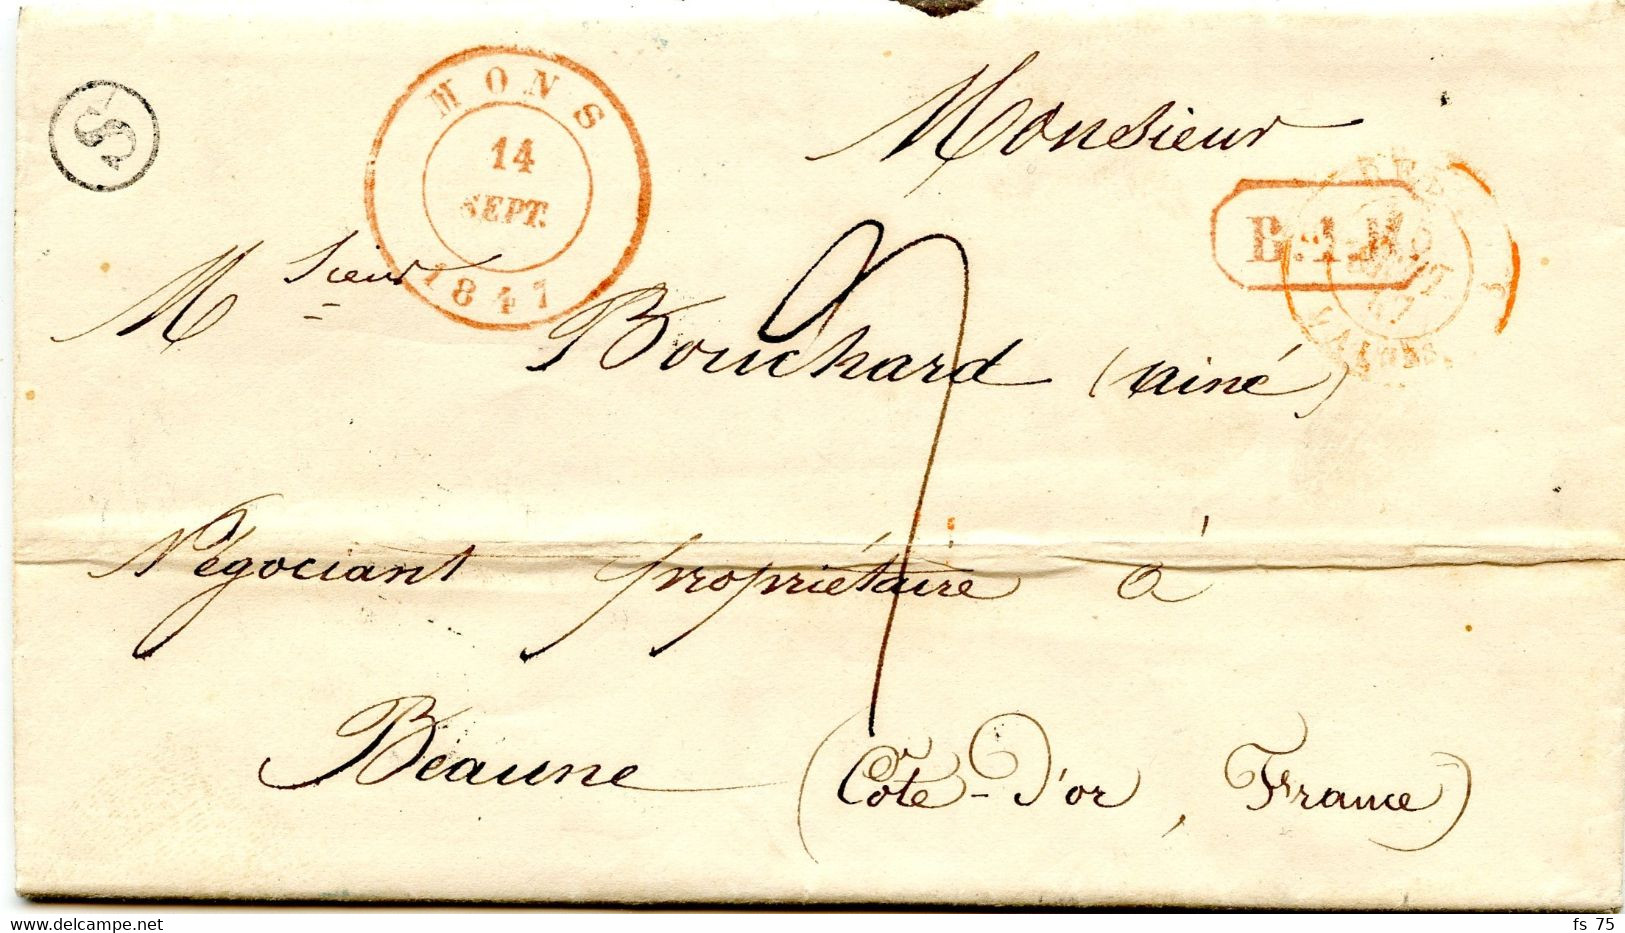 S
MONS
14
SEPT.
1847
Monsieur
B.1.R
Msieur Bouchard (ainé)
Négociant propriétaire à
Beaune (Côte-d'or, France)
www.delcampe.net
fs 75